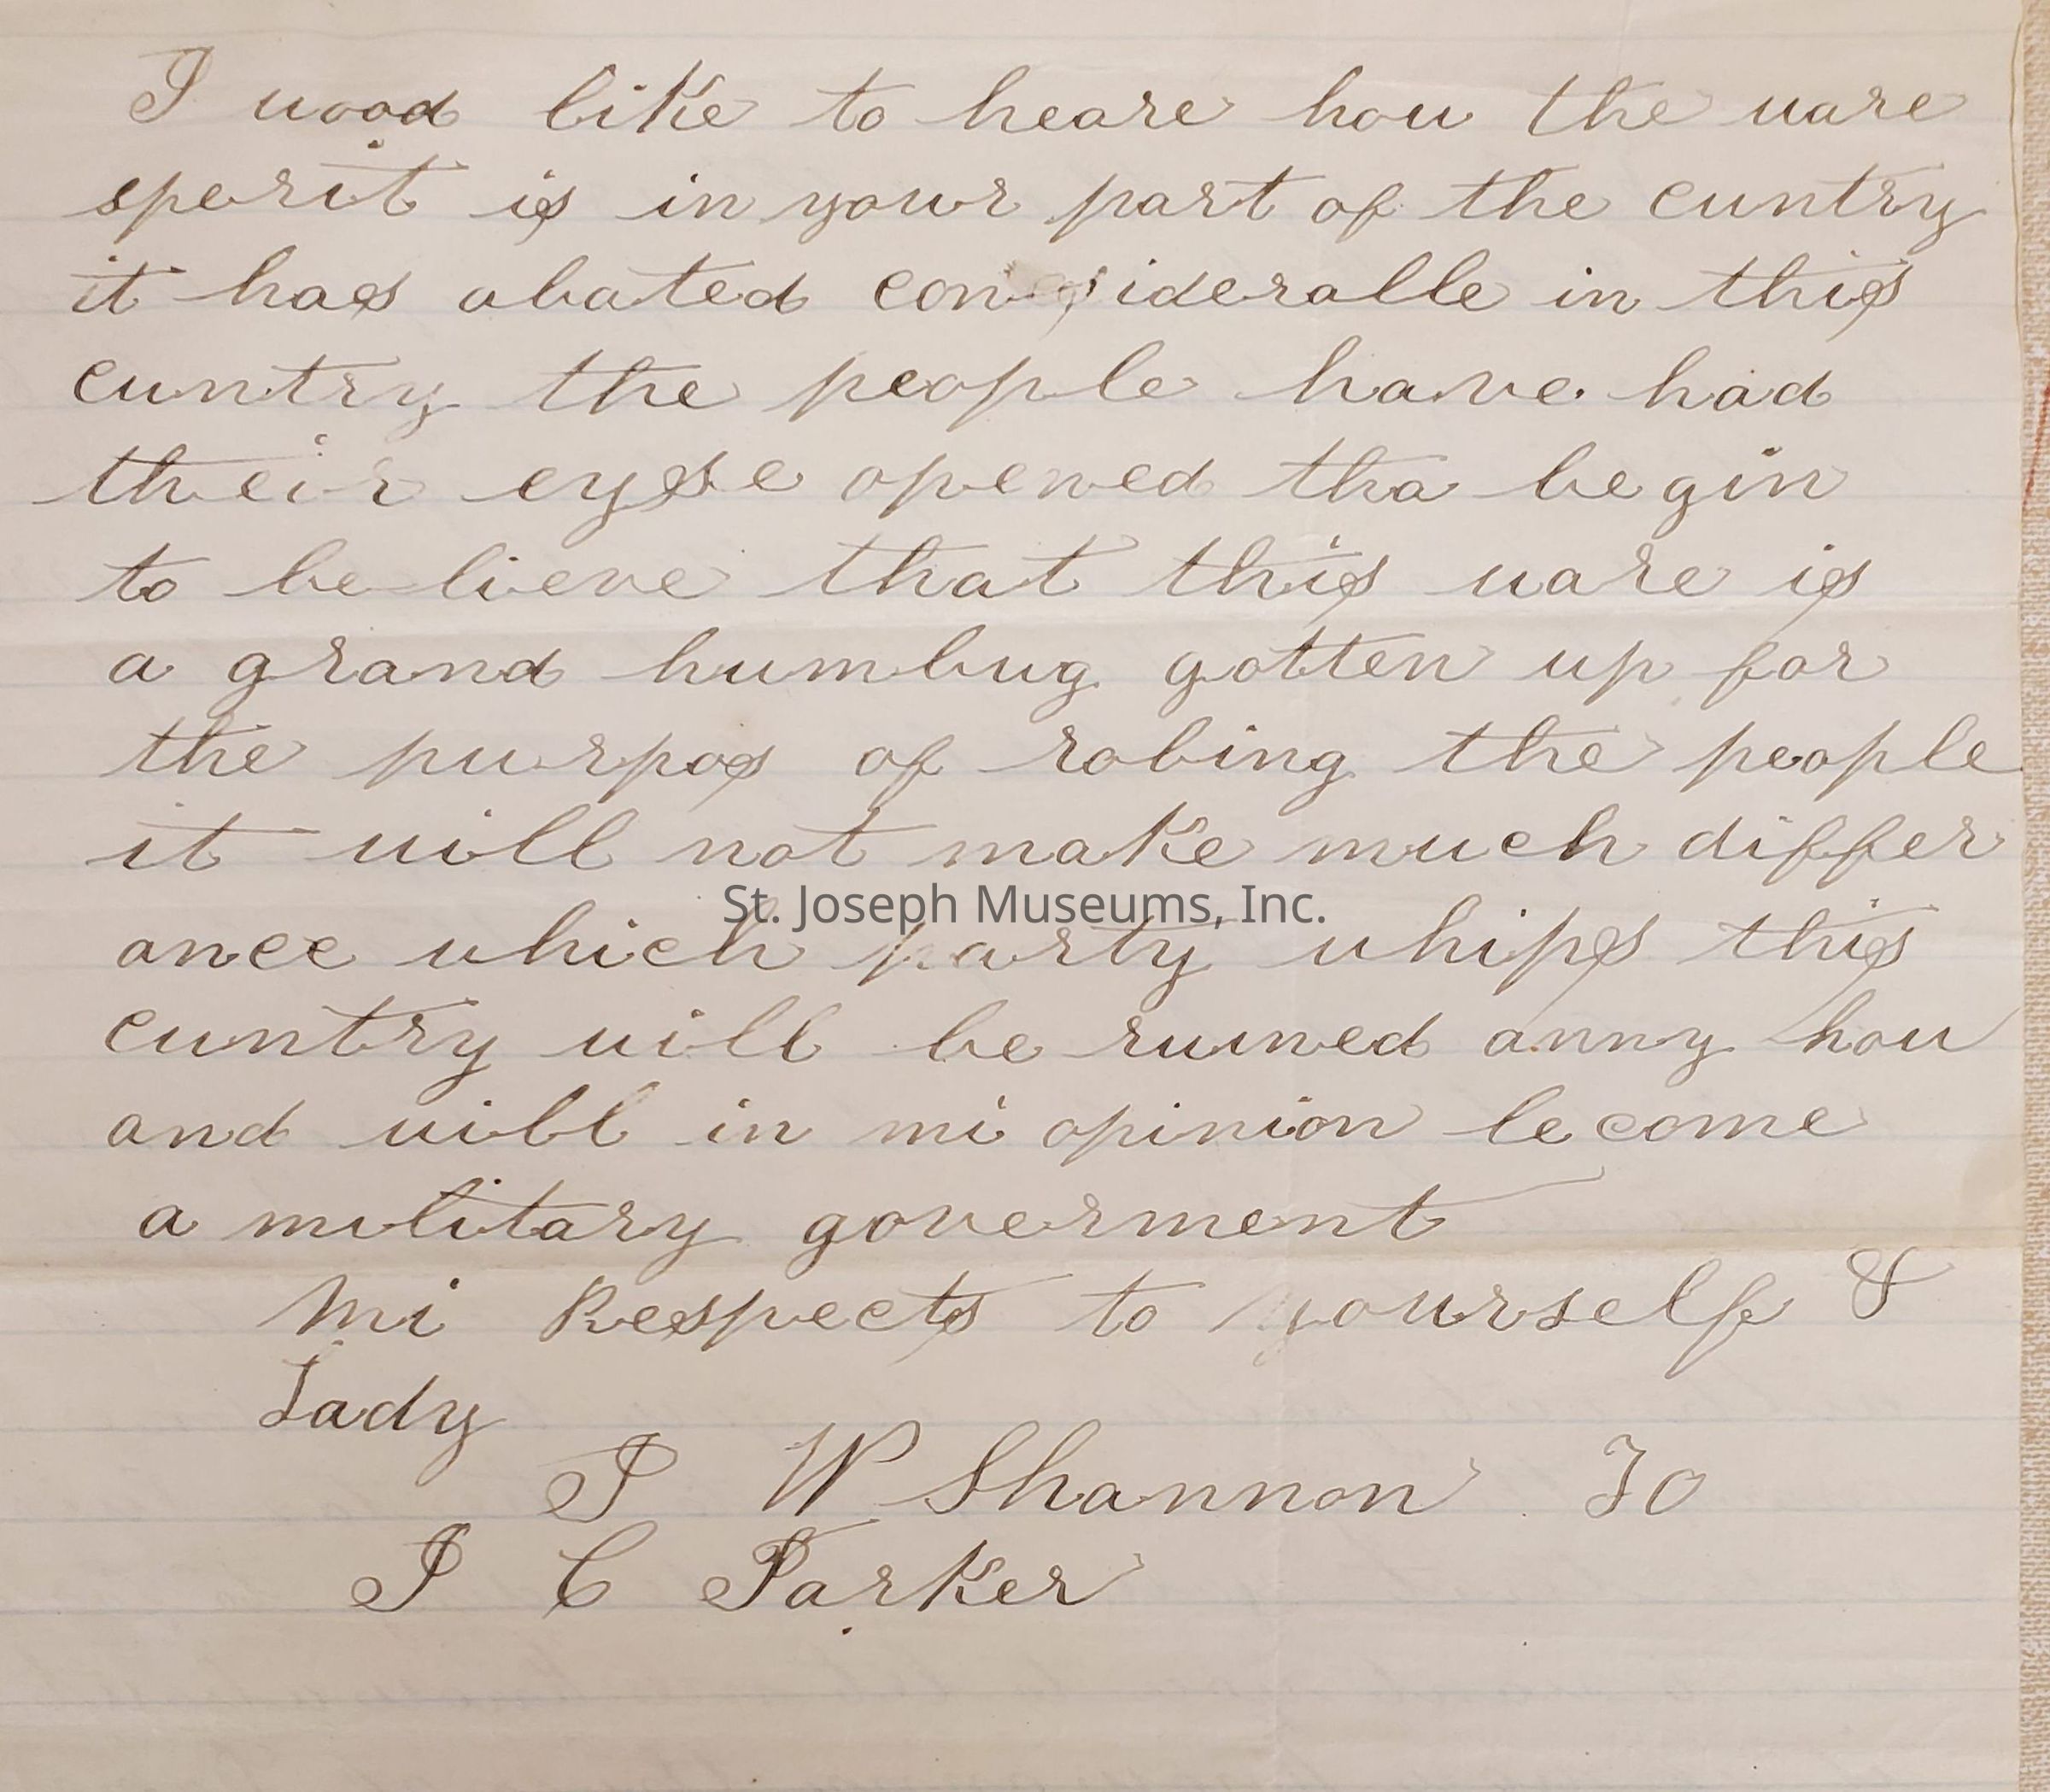 I wood like to heare how the ware
sperit is in your part of the cuntry
it has abated considerable in this
cuntry the people have had
their eyse opened tha begin
to believe that this ware is
a grand humbug gotten up for
the purpos of robing the people
it will not make much differ
ance which party whips this
St. Joseph Museums, Inc.
cuntry will be ruined anny how
and will in mi opinion become
a military goverment
Mi Respects to yourself &
Lady
I W Shannon To
I C Parker